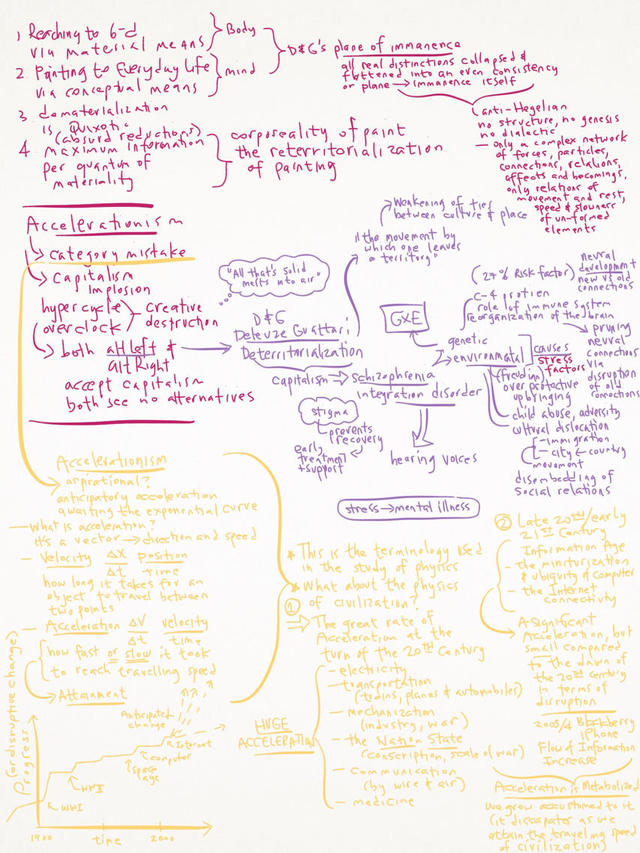 1 Reaching to 6-d
via material means
Body
2 Painting to Everyday Life
via conceptual means
mind
D&G's plane of immanence
all real distinctions collapsed &
flattened into an even consistency
or plane → immanence itself
3 dematerialization
is Quixotic
(absurd reductions)
4. maximum information
per quantum of
materiality
corporeality of paint
the reterritorialization
of painting
anti-Hegelian
no structure, no genesis
no dialectic
— only a complex network
of forces, particles,
connections, relations,
affects and becomings,
only relations of
movement and rest,
speed & slowness
of un-formed
elements
Accelerationism
category mistake
Capitalism
Implosion
hypercycle
overclock
creative
destruction
both alt left &
alt Right
accept capitalism
both see no alternatives
"All that's solid
melts into air"
D&G
Deleuze Guattari
Deterritorialization
Weakening of ties
between culture & place
"the movement by
which one leaves
a territory"
capitalism → Schizophrenia
integration disorder
stigma
prevents
recovery
early
treatment
+ support
hearing voices
stress → mental illness
GXE
genetic
environmental
causes
stress
factors
(27% Risk factor)
neural
development
new vs old
connections
C-4 protien
role of immune system
reorganization of the brain
pruning
neural
connections
via
disruption
of old
connections
(freudian)
over protective
upbringing
child abuse, adversity
cultural dislocation
— immigration
— city ↔ country
movement
disembedding of
social relations
Accelerationism
aspirational?
anticipatory acceleration
awaiting the exponential curve
— What is acceleration?
it's a vector → direction and speed
— Velocity ΔX position
Δt time
how long it takes for an
object to travel between
two points
— Acceleration ΔV velocity
Δt time
how fast or slow it took
to reach travelling speed
→ Attainment
Progress
(or disruptive change)
Anticipated
change
Internet
computer
space
age
WWII
WWI
1900
time
2000
* This is the terminology used
in the study of physics
* What about the physics
of civilization?
1
⇒ The great rate of
Acceleration at the
turn of the 20th Century
HUGE
ACCELERATION
— electricity
— transportation
(trains, planes & automobiles)
— mechanization
(industry, war)
— the Nation State
(conscription, scale of war)
— communication
(by wire & air)
— medicine
2 Late 20th/early
21st Century
Information Age
— the miniturization
& ubiquity of computer
— the Internet
connectivity
A Significant
Acceleration, but
small compared
to the dawn of
the 20th century
in terms of
disruption
2003/4 Blackberry
iPhone
Flow of Information
Increase
Acceleration is Metabolized
we grow accustomed to it
(it dissipates as we
attain the traveling speed
of civilization)